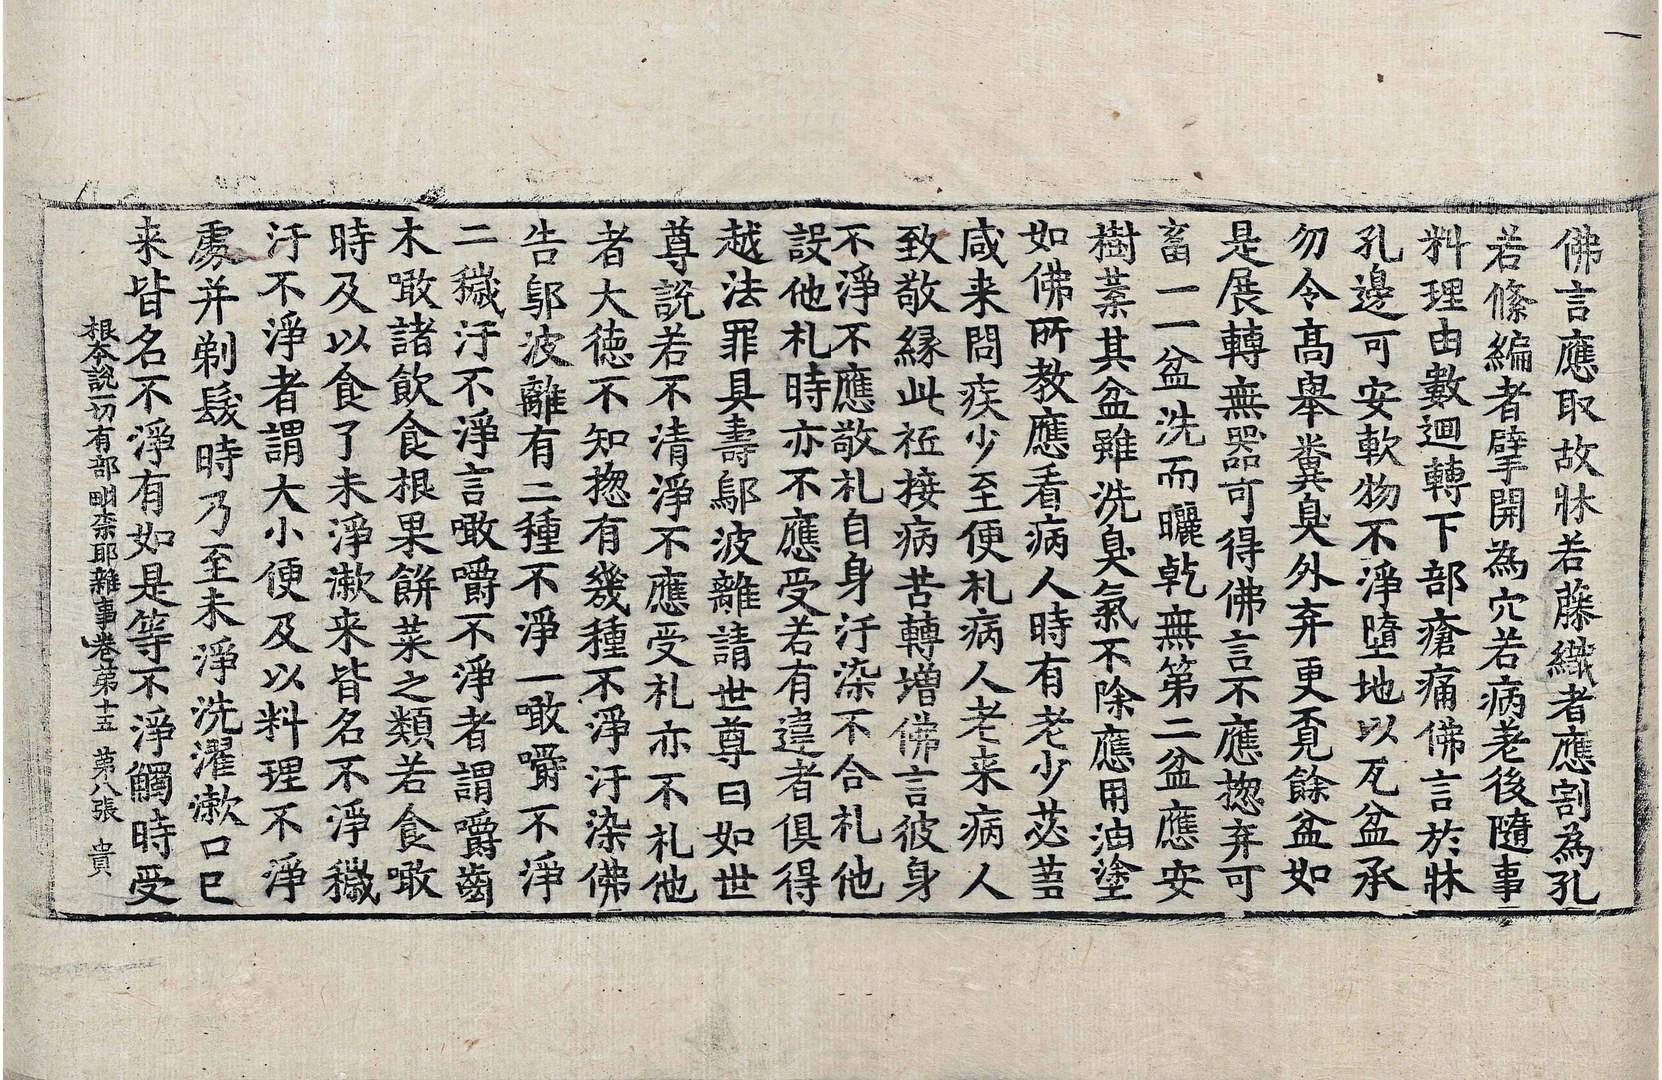 佛言應取故牀若藤織者應割為孔
若絛編者擘開為穴若病老後隨事
料理由數迴轉下部瘡痛佛言於牀
孔邊可安軟物不淨墮地以瓦盆承
勿令高舉糞臭外弃更覓餘盆如
是展轉無器可得佛言不應揔弃可
畜一一盆洗而曬乾無第二盆應安
樹葉其盆雖洗臭氣不除應用油塗
如佛所教應看病人時有老少苾蒭
咸来問疾少至便札病人老来病人
致敬縁此祇接病苦轉增佛言彼身
不淨不應敬札自身汙染不合札他
設他札時亦不應受若有違者俱得
越法罪具壽鄔波離請世尊曰如世
尊說若不清淨不應受札亦不札他
者大徳不知揔有幾種不淨汙染佛
告鄔波離有二種不淨一噉嚼不淨
二穢汙不淨言噉嚼不淨者謂嚼齒
木噉諸飲食根果餅菜之類若食噉
時及以食了未淨漱来皆名不淨穢
汙不淨者謂大小便及以料理不淨
䖏并剃髮時乃至未淨洗濯漱口已
来皆名不淨有如是等不淨觸時受
根本說一切有部毗奈耶雜事卷第十五 第八張 貴